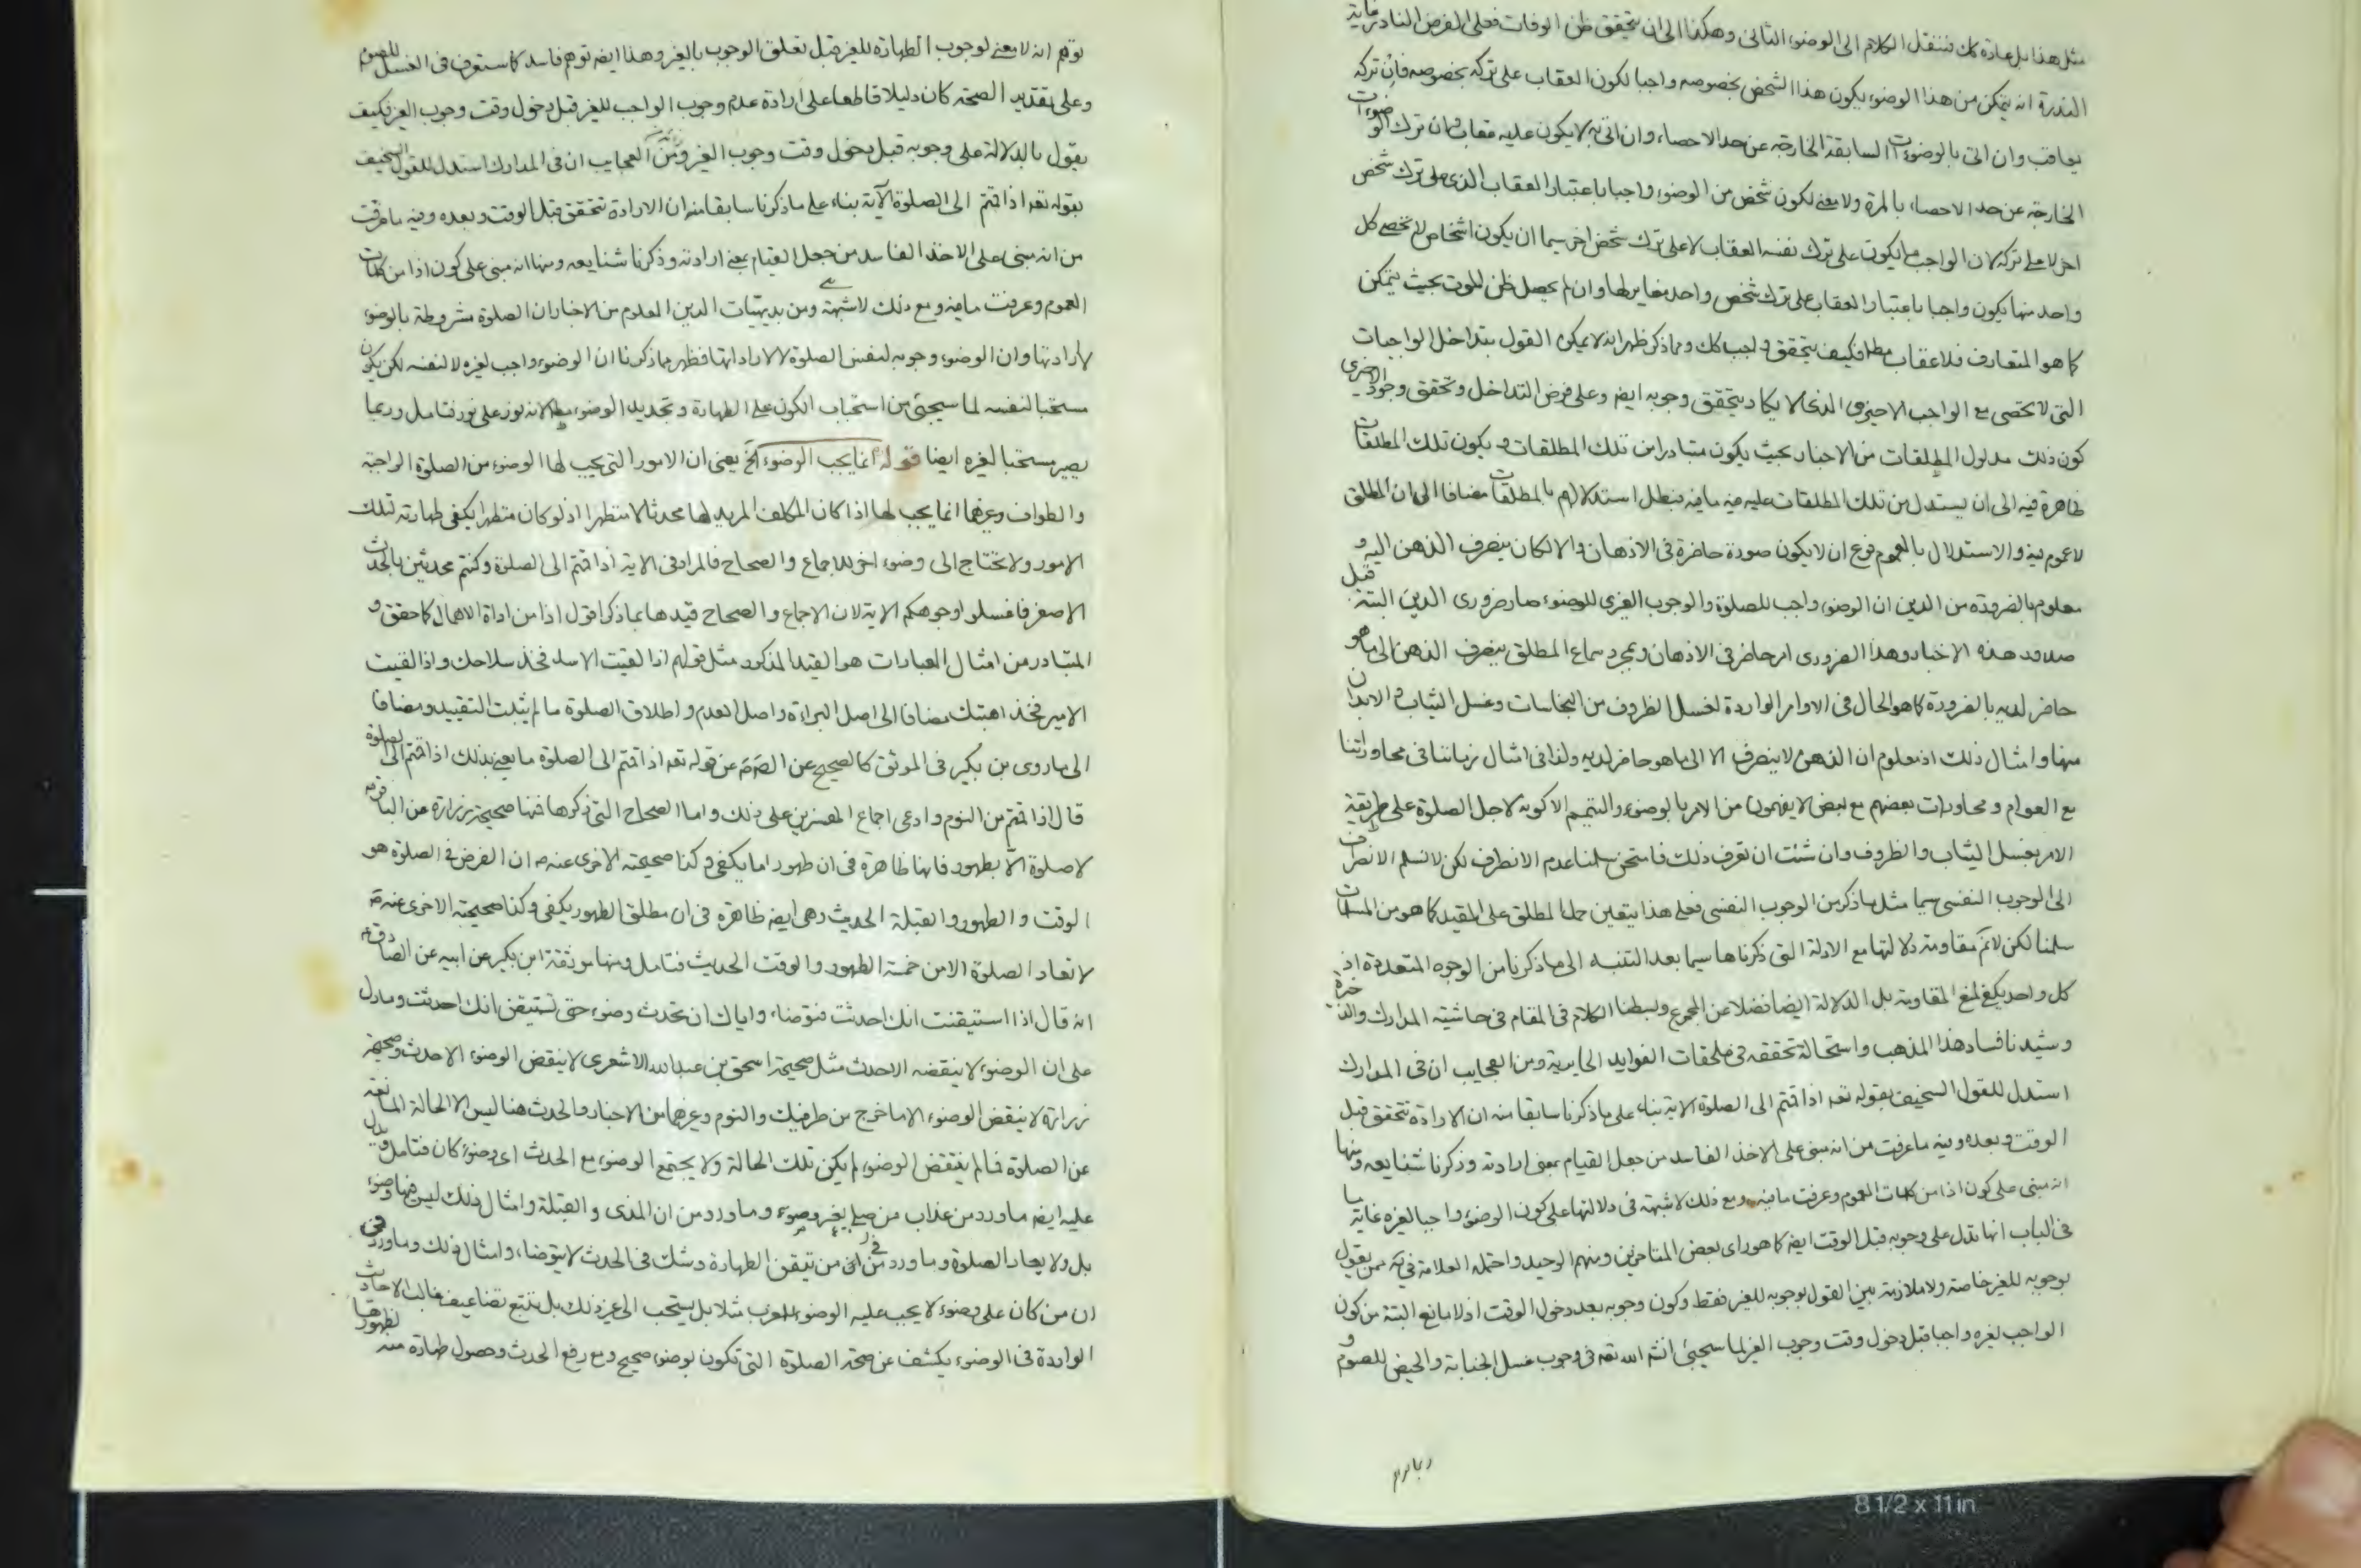 مثل هذا بل عادة كك فننقل الكلام الى الوضوء الثانى وهكذا الى ان يتحقق ظن الوفات فعلى الفرض النادر غاية
الندرة انه يتمكن من هذا الوضوء يكون هذا الشخص بخصوصه واجبا لكون العقاب على تركه بخصوصه فان تركه
يعاقب وان اتى بالوضوءات السابقة الخارجة عن حد الاحصاء وان اتى به لا يكون عليه عقاب وان ترك الوضوءات
الخارجة عن حد الاحصاء بالمرة ولا معنى لكون شخص من الوضوء واجبا باعتبار العقاب الذى على ترك شخص
اخر لا على تركه لان الواجب ما يكون على ترك نفسه العقاب لا على ترك شخص اخر سيما ان يكون اشخاص لا تحصى كل
واحد منها يكون واجبا باعتبار العقاب على ترك شخص واحد مغاير لها وان لم يحصل ظن للموت بحيث يتمكن
كما هو المتعارف فلا عقاب مطلقا فكيف يتحقق واجب كك ومما ذكر ظهر انه لا يمكن القول بتداخل الواجبات
التى لا تحصى مع الواجب الاخير الذى لا يكاد يتحقق وجوبه ايضه وعلى فرض التداخل وتحقق وجود الاخرى
كون ذلك مدلول المطلقات من الاخبار بحيث يكون متبادرا من تلك المطلقات ويكون تلك المطلقات
ظاهرة فيه الى ان يستدل من تلك المطلقات عليه فيه ما فيه فبطل استدلالهم بالمطلقات مضافا الى ان المطلق
لا عموم فيه والاستدلال بالعموم فرع ان لا يكون صورة حاضرة فى الاذهان والا لكان ينصرف الذهن اليه و
معلوم بالضرورة من الدين ان الوضوء واجب للصلوة والوجوب الغيرى للوضوء صار ضرورى الدين البتة قبل
صدور هذه الاخبار وهذا الضرورى امر حاضر فى الاذهان وبمجرد سماع المطلق ينصرف الذهن الى ما هو
حاضر لديه بالضرورة كما هو الحال فى الاوامر الواردة لغسل الظروف من النجاسات وغسل الثياب والابدان
منها وامثال ذلك اذ معلوم ان الذهن لا ينصرف الا الى ما هو حاضر لديه ولذا فى امثال زماننا فى محاوراتنا
مع العوام ومحاورات بعضهم مع بعض لا يفهمون من الامر بالوضوء والتيمم الا كونه لاجل الصلوة على طريقة
الامر بغسل الثياب والظروف وان شئت ان تعرف ذلك فامتحن سلمنا عدم الانصراف لكن لا نسلم الانصراف
الى الوجوب النفسى سيما مثل ما ذكر من الوجوب النفسى فعلى هذا يتعين حمل المطلق على المقيد كما هو من المسلمات
سلمنا لكن لا نم مقاومة دلالتها مع الادلة التى ذكرناها سيما بعد التنبه الى ما ذكرنا من الوجوه المتعددة اذ
كل واحد يكفى لمنع المقاومة بل الدلالة ايضا فضلا عن المجموع وبسطنا الكلام فى المقام فى حاشية المدارك والذخيرة
وشيدنا فساد هذا المذهب واستحالة تحققه فى ملحقات الفوايد الحايرية ومن العجايب ان فى المدارك
استدل للقول السخيف بقوله تعه اذا قمتم الى الصلوة الاية بناء على ما ذكرنا سابقا منه ان الارادة تتحقق قبل
الوقت وبعده وفيه ما عرفت من انه مبنى على الاخذ الفاسد من جعل القيام بمعنى ارادته وذكرنا شنايعه ومنها
انه مبنى على كون اذا من كلمات العموم وعرفت ما فيه ومع ذلك لا شبهة فى دلالتها على كون الوضوء واجبا لغيره غاية ما
فى الباب انها تدل على وجوبه قبل الوقت ايضه كما هو راى بعض المتاخرين ومنهم الوحيد واحتمله العلامة فى يه ممن يقول
بوجوبه للغير خاصة ولا ملازمة بين القول بوجوبه للغير فقط وكون وجوبه بعد دخول الوقت اذ لا مانع البتة من كون
الواجب لغيره واجبا قبل دخول وقت وجوب الغير لما سيجئ انشه الله تعه فى وجوب غسل الجنابة والحيض للصوم و
توهم انه لا معنى لوجوب الطهارة للغير قبل تعلق الوجوب بالغير وهذا ايضه توهم فاسد كما ستعرف فى الغسل للصوم
وعلى تقدير الصحة كان دليلا قاطعا على ارادة عدم وجوب الواجب للغير قبل دخول وقت وجوب الغير فكيف
يقول بالدلالة على وجوبه قبل دخول وقت وجوب الغير ومن العجايب ان فى المدارك استدل للقول السخيف
بقوله تعه اذا قمتم الى الصلوة الآية بناء على ما ذكرنا سابقا منه ان الارادة تتحقق قبل الوقت وبعده وفيه ما عرفت
من انه مبنى على الاخذ الفاسد من جعل القيام بمعنى ارادته وذكرنا شنايعه ومنها انه مبنى على كون اذا من كلمات
العموم وعرفت ما فيه ومع ذلك لا شبهة ومن بديهيات الدين المعلوم من الاخبار ان الصلوة مشروطة بالوضوء
لا ارادتها وان الوضوء وجوبه لنفس الصلوة لا لارادتها فظهر مما ذكرنا ان الوضوء واجب لغيره لا لنفسه لكن يكون
مستحبا لنفسه لما سيجئ من استحباب الكون على الطهارة وتجديد الوضوء مطلقا لانه نور على نور فتامل وربما
يصير مستحبا لغيره ايضا قوله انما يجب الوضوء الخ يعنى ان الامور التى يجب لها الوضوء من الصلوة الواجبة
والطواف وغيرهما انما يجب لها اذا كان المكلف المريد لها محدثا لا متطهرا اذ لو كان متطهرا يكفى طهارته لتلك
الامور ولا يحتاج الى وضوء اخر للاجماع والصحاح فالمراد فى الاية اذا قمتم الى الصلوة وكنتم محدثين بالحدث
الاصغر فاغسلوا وجوهكم الاية لان الاجماع والصحاح قيدها بما ذكر اقول اذا من اداة الاهمال كما حقق و
المتبادر من امثال العبارات هو القيد المذكور مثل قولهم اذا لقيت الاسد فخذ سلاحك واذا لقيت
الامير فخذ اهبتك مضافا الى اصل البراءة واصل العدم واطلاق الصلوة ما لم يثبت التقييد ومضافا
الى ما روى بن بكير فى الموثق كالصحيح عن الصه عن قوله تعه اذا قمتم الى الصلوة ما يعنى بذلك اذا قمتم الى الصلوة
قال اذا قمتم من النوم وادعى اجماع المفسرين على ذلك واما الصحاح التى ذكرها فمنها صحيحة زرارة عن الباقر ع
لا صلوة الا بطهور فانها ظاهرة فى ان طهورا ما يكفى وكذا صحيحته الاخرى عنه ع ان الفرض فى الصلوة هو
الوقت والطهور والقبلة الحديث وهى ايضه ظاهرة فى ان مطلق الطهور يكفى وكذا صحيحته الاخرى عنه ع
لا تعاد الصلوة الا من خمسة الطهور والوقت الحديث فتامل ومنها موثقة ابن بكير عن ابيه عن الصادق ع
انه قال اذا استيقنت انك احدثت فتوضاء واياك ان تحدث وضوء حتى تستيقن انك احدثت وما دل
على ان الوضوء لا ينقضه الا حدث مثل صحيحة اسحق بن عبد الله الاشعرى لا ينقض الوضوء الا حدث وصحيحة
زرارة لا ينقض الوضوء الا ما خرج من طرفيك والنوم وغيرهما من الاخبار والحدث هنا ليس الا الحالة المانعة
عن الصلوة فما لم ينتقض الوضوء لم يكن تلك الحالة ولا يجتمع الوضوء مع الحدث اى وضوء كان فتامل ويدل
عليه ايضه ما ورد من عذاب من صلى بغير وضوء وما ورد من ان المذى والقبلة وامثال ذلك ليس فيها وضوء
بل ولا يعاد الصلوة وما ورد من ان من تيقن الطهارة وشك فى الحدث لا يتوضاء وامثال ذلك وما ورد فى
ان من كان على وضوء لا يجب عليه الوضوء للغرب مثلا بل يستحب الى غير ذلك بل بتتبع تضاعيف غالب الاحاديث
الواردة فى الوضوء يكشف عن صحة الصلوة التى تكون بوضوء صحيح ومع رفع الحدث وحصول طهارة منه لظهورها